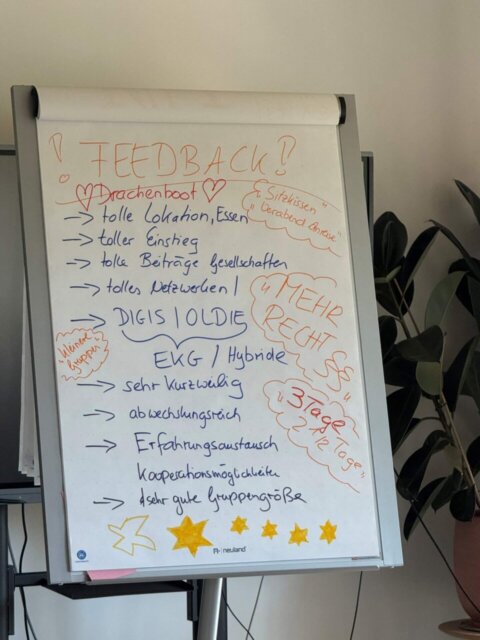 ! FEEDBACK!
♡ Drachenboot ♡
"Sitzkissen"
"Vorabend Anreise"
→ tolle Lokation, Essen
→ toller Einstieg
→ tolle Beiträge Gesellschaften
→ tolles Netzwerken /
"MEHR
RECHT §§
§§"
→ DIGIS | OLDIE
"kleinere
Gruppen"
EKG / Hybride
→ sehr kurzweilig
"3 Tage
2 1/2 Tage"
→ abwechslungsreich
→ Erfahrungsaustausch
Kooperationsmöglichkeiten
→ sehr gute Gruppengröße
neuland